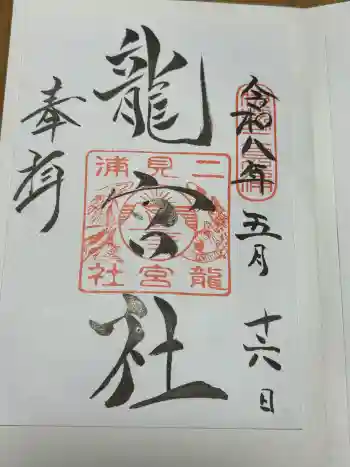 令和八年五月十六日
龍宮社
奉拝
二見浦
龍宮社